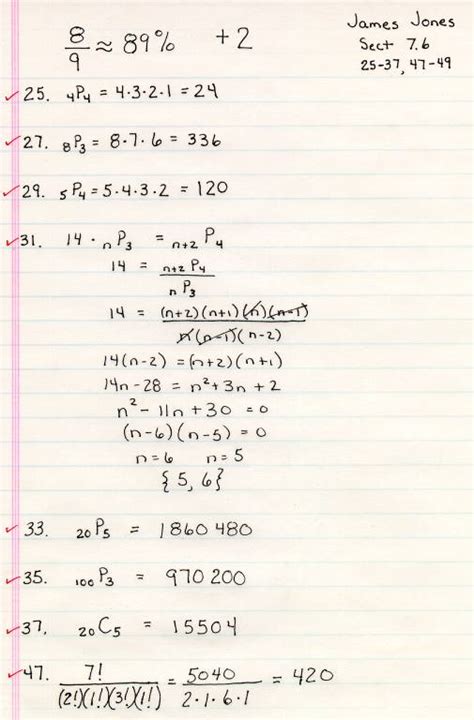 James Jones
8/9 ≈ 89% +2
Sect 7.6
25-37, 47-49
✓25. ₄P₄ = 4·3·2·1 = 24
✓27. ₈P₃ = 8·7·6 = 336
✓29. ₅P₄ = 5·4·3·2 = 120
✓31. 14 · ₙP₃ = ₙ₊₂P₄
14 = ₙ₊₂P₄ / ₙP₃
14 = (n+2)(n+1)(n)(n-1) / n(n-1)(n-2)
14(n-2) = (n+2)(n+1)
14n - 28 = n² + 3n + 2
n² - 11n + 30 = 0
(n-6)(n-5) = 0
n=6 n=5
{5, 6}
✓33. ₂₀P₅ = 1860 480
✓35. ₁₀₀P₃ = 970 200
✓37. ₂₀C₅ = 15504
✓47. 7! / (2!)(1!)(3!)(1!) = 5040 / 2·1·6·1 = 420